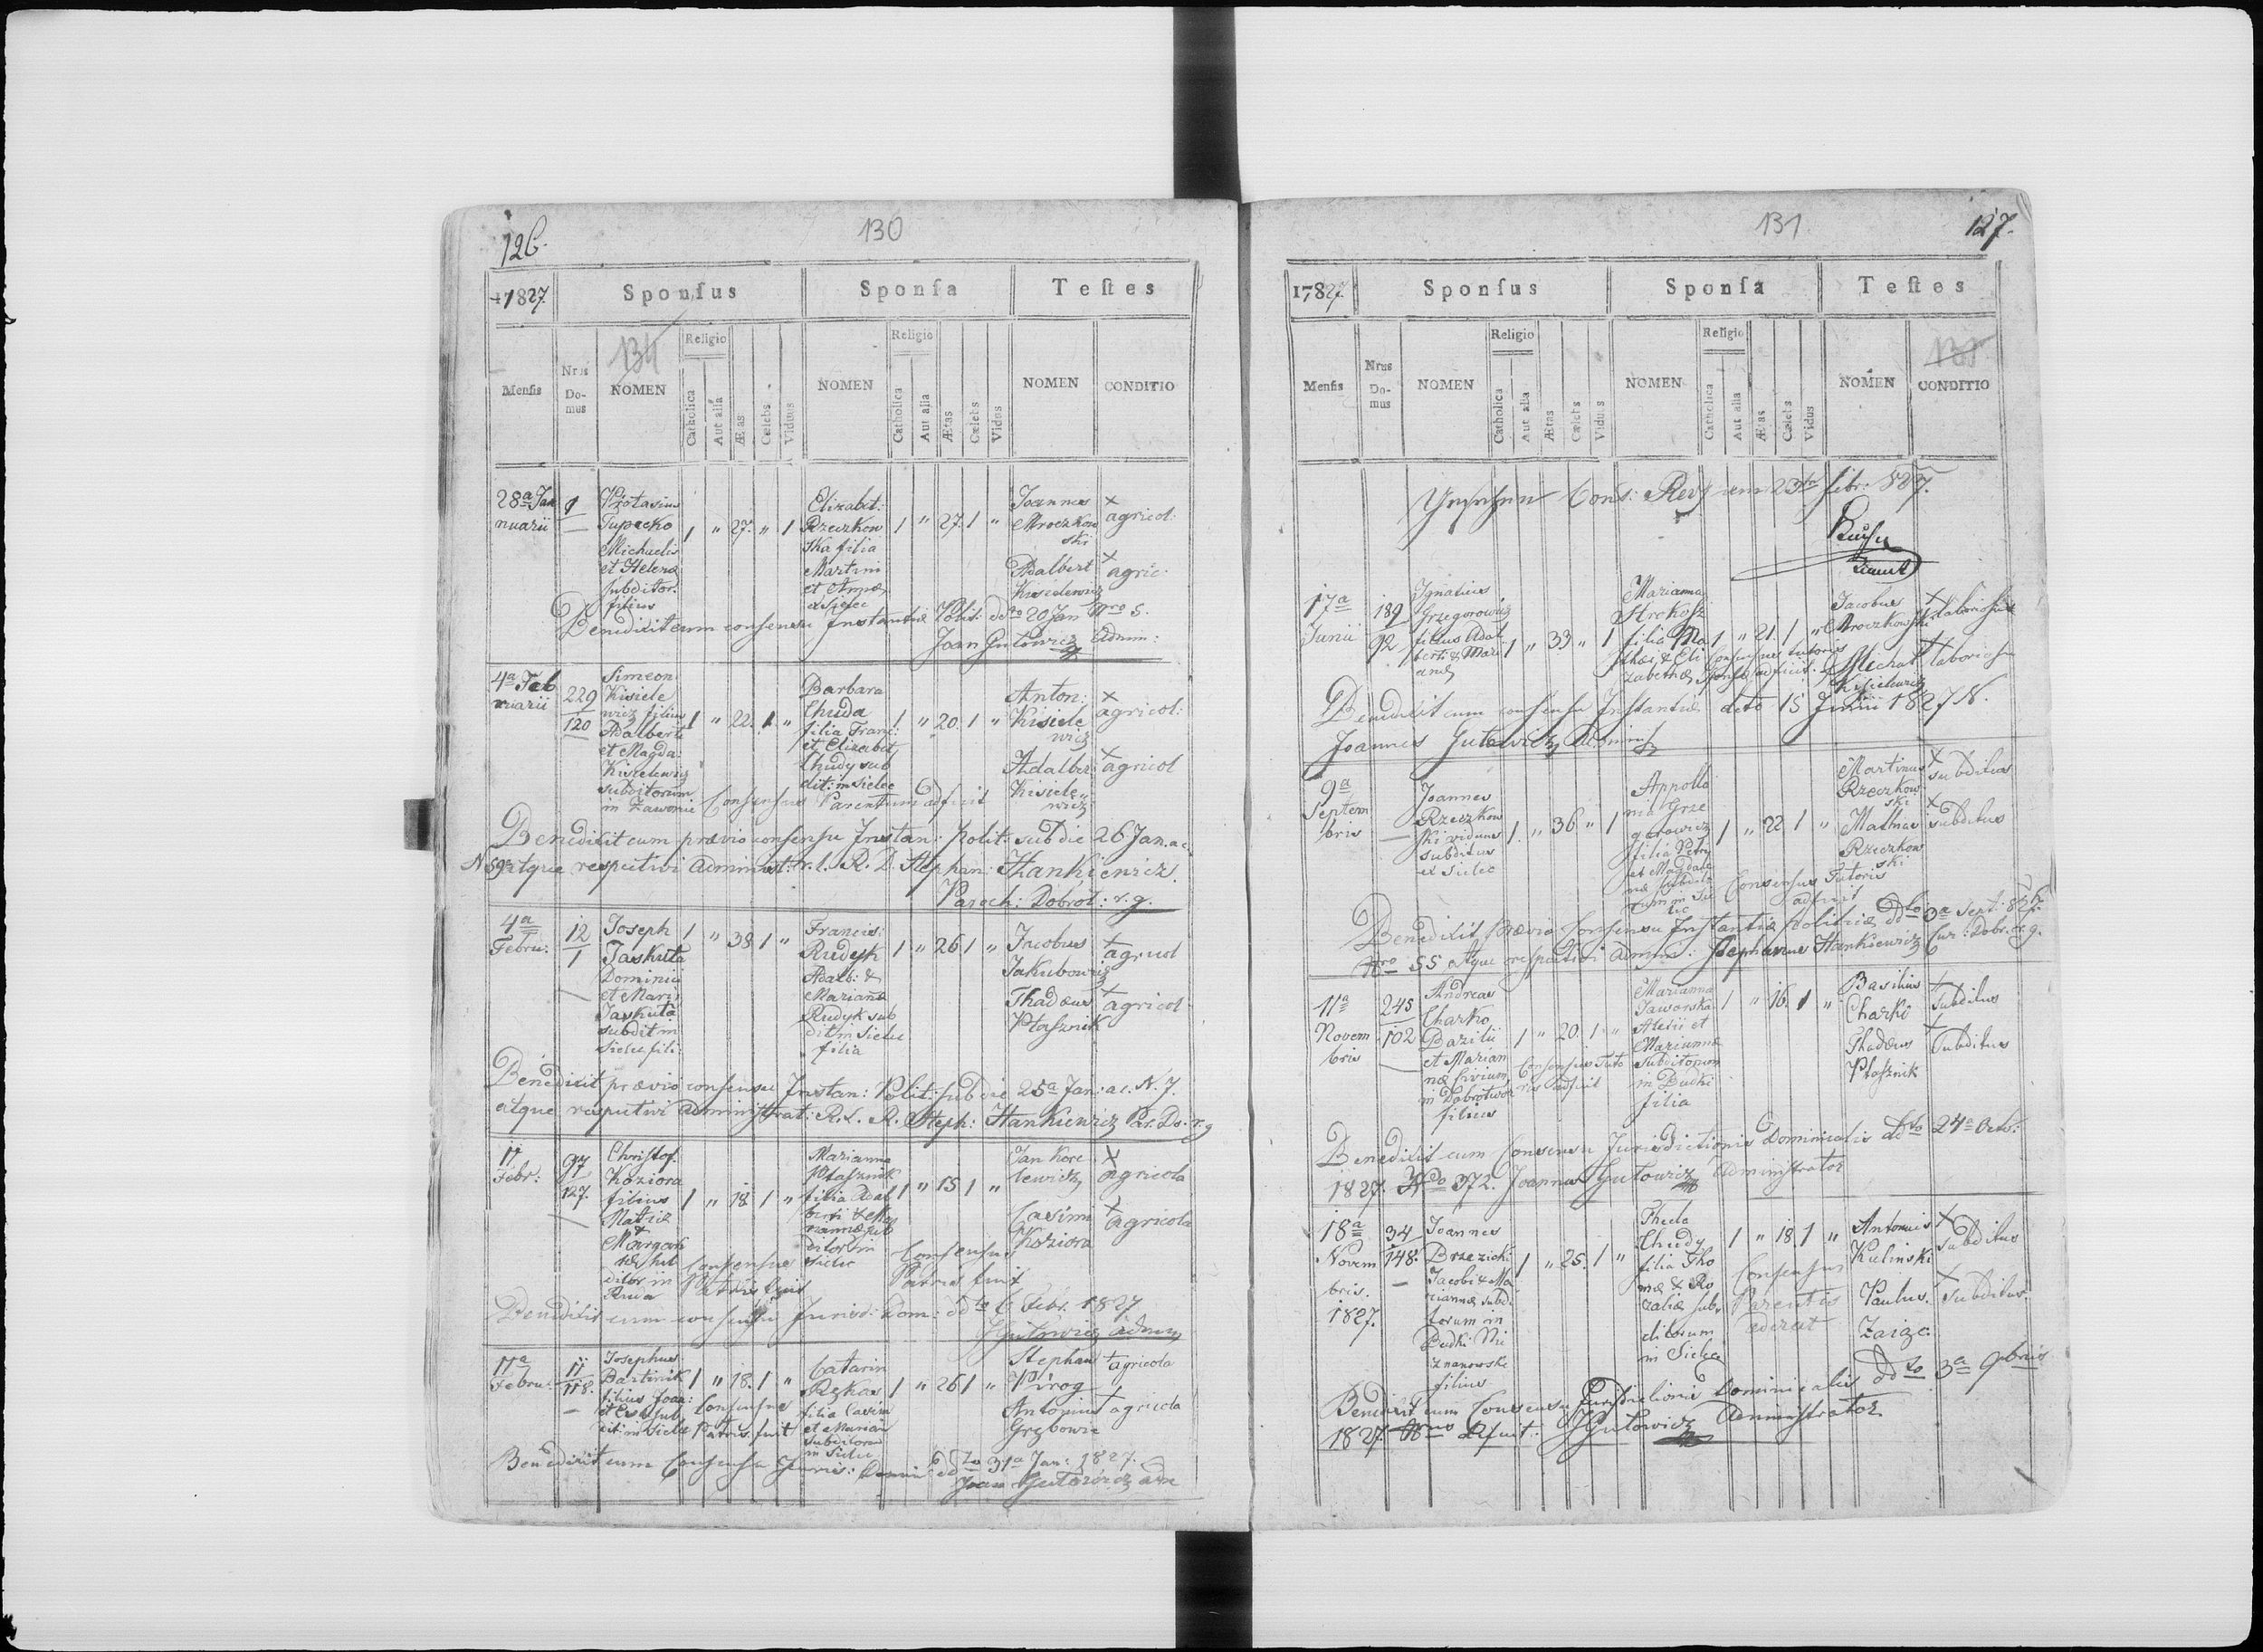 126.
130
17827.
Sponſus
Sponſa
Teſtes
Menſis
Nrus Domus
134
NOMEN
Religio
Catholica
Aut alia
Ætas
Cælebs
Vidus
NOMEN
Religio
Catholica
Aut alia
Ætas
Cælebs
Vidus
NOMEN
CONDITIO
28a Jan
nuarii
1
Protasius
Michaelis
et Helenæ
subditor.
filius
1 " 27. " 1
Elizabet:
Rzeczkow
ska filia
Martini
et Annæ
ex Sielec
1 " 27. 1 "
Joannes
Mroczkow
ski
+
agricol:
Adalbert
Kisielewicz
+
agric:
Benedixit cum consensu Instantiæ Polit: ddto 20 Jan Nro 5.
Joan Gutowicz Admin:
4a Feb
ruarii
229
120
Simeon
Kisiele
wicz filius
Adalberti
et Magda
Kisielewicz
subditorum
in Zawonie
1 " 22. 1. "
Barbara
Chuda
filia Franc:
et Elizabet
Chudy sub
dit: in Sielec
1 " 20. 1 "
Anton:
Kisiele
wicz
+
agricol:
Adalber:
Kisiele
wicz
+
agricol
Consensus Parentum adfuit
Benedixit cum prævio consensu Instan: polit: sub die 26 Jan. a c.
N 59 atque respectivi Administ: r. l. R. D. Stephan: Hankiewicz.
Paroch: Dobrot: r. g.
4a
Febru:
12
1
Joseph
Jaskuta
Dominici
et Mari
Jaskuta
subdit in
Sielec fili:
1 " 38 1 "
Francis:
Rudyk
Adalb: &
Mariannæ
Rudyk sub
dit in Sielec
filia
1 " 26 1 "
Jacobus
Jakubowicz
+
agricol
Thadæus
Ptasznik
+
agricol
Benedixit prævio consensu Instan: Polit: sub die 25a Jan: a c. N. 7.
atque respectivi Administrat: R. L. R. Steph: Hankiewicz Par. Do. r. g
11
Febr:
97
127.
Christof.
Koziora
filius
Matiæ
&
Margari
tæ sub
ditor in
Ruda
1 " 18 1 "
Marianna
Ptasznik
filia Adal
berti & Ma
riannæ sub
ditor in
Sielec
1 " 15 1 "
Jan Kore
lewicz
+
agricola
Casimir
Koziora
+
agricola
Consensus
Patris fuit
Consensus
Patris fuit
Benedixit cum consensu Jurisd: Dom: ddto 6 Febr. 1827
JGutowicz Admin
11a
Febru.
11
118.
Josephus
Bartnik
filius Joan:
et Eva sub
dit in Sielec
1 " 18. 1 "
Consensus
Patris fuit
Catarin
Rękas
filia Casim
et Marian
subditorum
in Sielec
1 " 26 1 "
Stephan
Pirog
+
agricola
Antonius
Grębowie
+
agricola
Benedixit cum Consensu Juris: Domin: ddto 31a Jan: 1827.
Joan Gutowicz adm
131
127.
17827.
Sponſus
Sponſa
Teſtes
Menſis
Nrus Domus
NOMEN
Religio
Catholica
Aut alia
Ætas
Cælebs
Vidus
NOMEN
Religio
Catholica
Aut alia
Ætas
Cælebs
Vidus
NOMEN
CONDITIO
17a
Junii
189
92
Ignatius
Grzegorowicz
filius Adal
berti & Mari
annæ
1 " 33 " 1
Marianna
filia Ma
thæi & Eli
zabethæ
1 " 21. 1 "
Consensus tutoris
Sponsæ adfuit.
Jacobus
Mroczkowski
+
Michał
Kisielewicz
+
Benedixit cum consensu Instantiæ ddto 15 Junii 1827 N.
Joannes Gutowicz Admin
9a
Septem
bris
Joannes
Rzeczkow
ski viduus
subditus
ex Sielec
1. " 36 " 1
Appollo
nia Grze
gorowicz
filia Petri
et Magdale
næ subdit
rum in Sie
lec
1 " 22 1 "
Consensus Tutoris
adfuit
Martinus
Rzeczkow
ski
+
subditus
Mathias
Rzeczkow
ski
+
subditus
Benedixit Prævio Consensu Instantiæ Politicæ ddto 3a Sept: 827.
Nro 55 Atque respectivi Admin: Stephanus Hankiewicz Cur: Dobr. r. g.
11a
Novem
bris
245
102
Andreas
Charko
Bazilii
et Marian
næ Civium
in Dobrotwor
filius
1 " 20. 1 "
Consensus Tuto
ris adfuit
Marianna
Jaworska
Alexii et
Mariannæ
subditorum
in Budki
filia
1 " 16. 1 "
Basilius
Charko
+
Subditus
Thadæus
Ptasznik
+
Subditus
Benedixit cum Consensu Jurisdictionis Dominicalis ddto 24a Octo:
1827. Nro 372. Joannes Gutowicz Administrator
18a
Novem
bris.
1827.
34
148.
Joannes
Brzezicki
Jacobi & Ma
riannæ subdi
torum in
Budki Ni
znanowski
filius
1 " 25. 1 "
Thecla
Chudy
filia Tho
mæ & Ro
zaliæ sub
ditorum
in Sielec
1 " 18. 1 "
Consensus
Parentis
aderat
Antonius
Kulinski
+
Subditus
Paulus.
Zaiąc.
+
Subditus.
Benedixit cum Consensu Jurisdictionis Dominicalis Ddto 3a 9bris
1827. Nrus defuit. JGutowicz Administrator